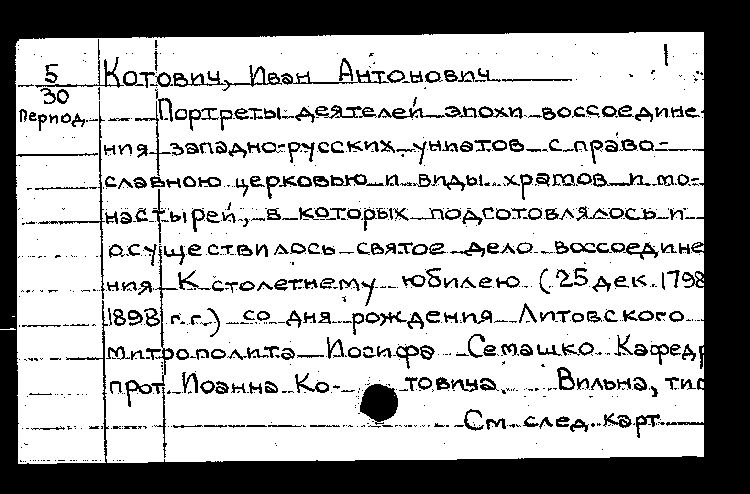 1
5 Котович, Иван Антонович
30
период Портреты деятелей эпохи воссоедине-
ния западно-русских униатов с право-
славною церковью и виды храмов и мо-
настырей, в которых подготовлялось и
осуществилось святое дело воссоедине
ния К столетнему юбилею (25 дек. 1798
1898 г.г.) со дня рождения Литовского
митрополита Иосифа Семашко Кафедр
прот. Иоанна Ко- товича. Вильна, тип
См. след. карт.